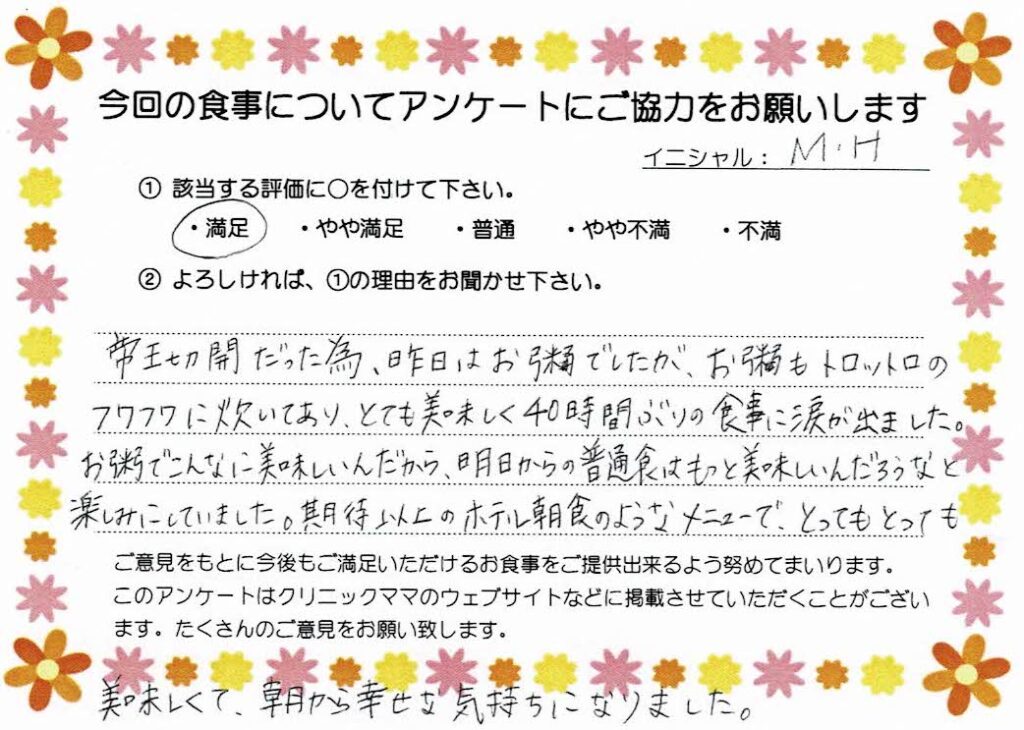 今回の食事についてアンケートにご協力をお願いします
イニシャル： M・H
① 該当する評価に○を付けて下さい。
・満足 ・やや満足 ・普通 ・やや不満 ・不満
② よろしければ、①の理由をお聞かせ下さい。
帝王切開だった為、昨日はお粥でしたが、お粥もトロットロの
フワフワに炊いてあり、とても美味しく40時間ぶりの食事に涙が出ました。
お粥でこんなに美味しいんだから、明日からの普通食はもっと美味しいんだろうなと
楽しみにしていました。期待以上のホテル朝食のようなメニューで、とってもとっても
ご意見をもとに今後もご満足いただけるお食事をご提供出来るよう努めてまいります。
このアンケートはクリニックママのウェブサイトなどに掲載させていただくことがござい
ます。たくさんのご意見をお願い致します。
美味しくて、朝から幸せな気持ちになりました。